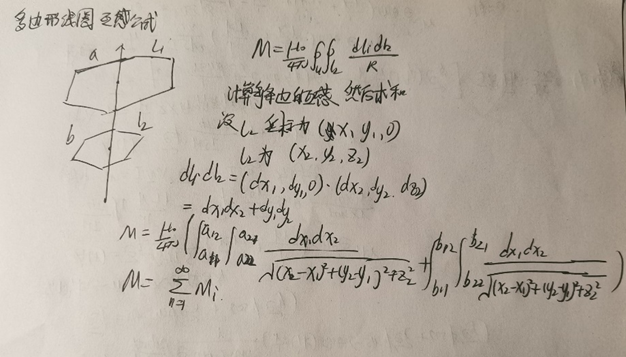 多边形线圈互感公式
a l₁
b l₂
M = μ₀/4π ∮l₁ ∮l₂ dl₁dl₂/R
计算每条边的互感 然后求和
设 l₁ 坐标为 (x₁, y₁, 0)
l₂ 为 (x₂, y₂, z₂)
dl₁·dl₂ = (dx₁, dy₁, 0)·(dx₂, dy₂, dz₂)
= dx₁dx₂ + dy₁dy₂
M = μ₀/4π ( ∫ ∫ dx₁dx₂/√((x₂-x₁)²+(y₂-y₁)²+z₂²) + ∫ ∫ dx₁dx₂/√((x₂-x₁)²+(y₂-y₁)²+z₂²) )
M = Σ_{n=1}^{∞} Mi.